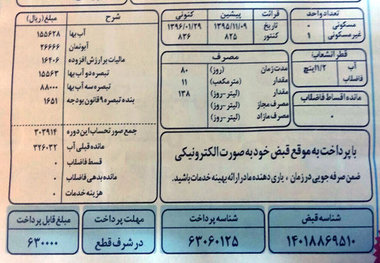 تعداد واحد
مسکونی ۱
غیر مسکونی ۰
قرائت پیشین کنونی
تاریخ ۱۳۹۵/۱۱/۰۹ ۱۳۹۶/۰۱/۲۹
کنتور ۸۲۵ ۸۳۶
قطر انشعاب
آب ۱/۲ اینچ
فاضلاب
مانده اقساط فاضلاب
مصرف
مدت زمان (روز) ۸۰
مقدار (مترمکعب) ۱۱
مقدار (لیتر-روز) ۱۳۸
مصرف مجاز (لیتر-روز)
مصرف مازاد (لیتر-روز)
شرح مبلغ (ریال)
آب بها ۱۵۵۶۲۸
آبونمان ۲۶۶۶۶
مالیات بر ارزش افزوده ۱۶۴۰۶
تبصره دو آب بها ۱۵۵۶۳
تبصره سه آب بها ۸۸۰۰۰
بند ه تبصره ۹ قانون بودجه ۱۶۵۱
جمع صورتحساب این دوره ۳۰۳۹۱۴
مانده قبلی آب ۳۲۶۰۳۲
قسط فاضلاب
مانده بدهی فاضلاب
هزینه خدمات
با پرداخت به موقع قبض خود به صورت الکترونیکی
ضمن صرفه جویی در زمان ، یاری دهنده ما در ارائه بهینه خدمات باشید.
شناسه قبض شناسه پرداخت مهلت پرداخت مبلغ قابل پرداخت
۱۴۰۱۸۸۶۹۵۱۰ ۶۳۰۶۰۱۲۵ در شرف قطع ۶۳۰۰۰۰